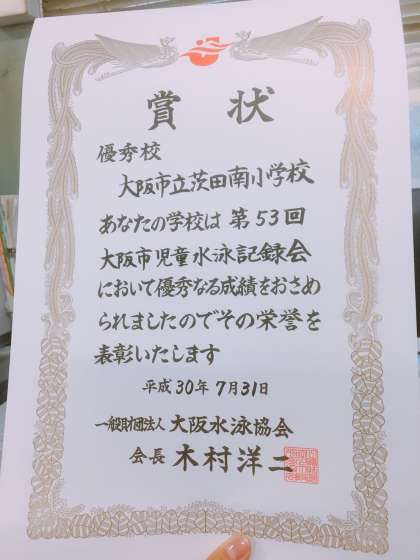 賞状
優秀校
大阪市立茨田南小学校
あなたの学校は第53回
大阪市児童水泳記録会
において優秀なる成績をおさめ
られましたのでその栄誉を
表彰いたします
平成30年7月31日
一般財団法人 大阪水泳協会
会長 木村洋二